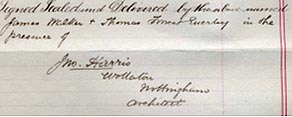 Signed Sealed and Delivered by the above named
James Walker & Thomas Forrest Queelay in the
presence of
Jno. Harris
Wollaton
Nottingham
Architect